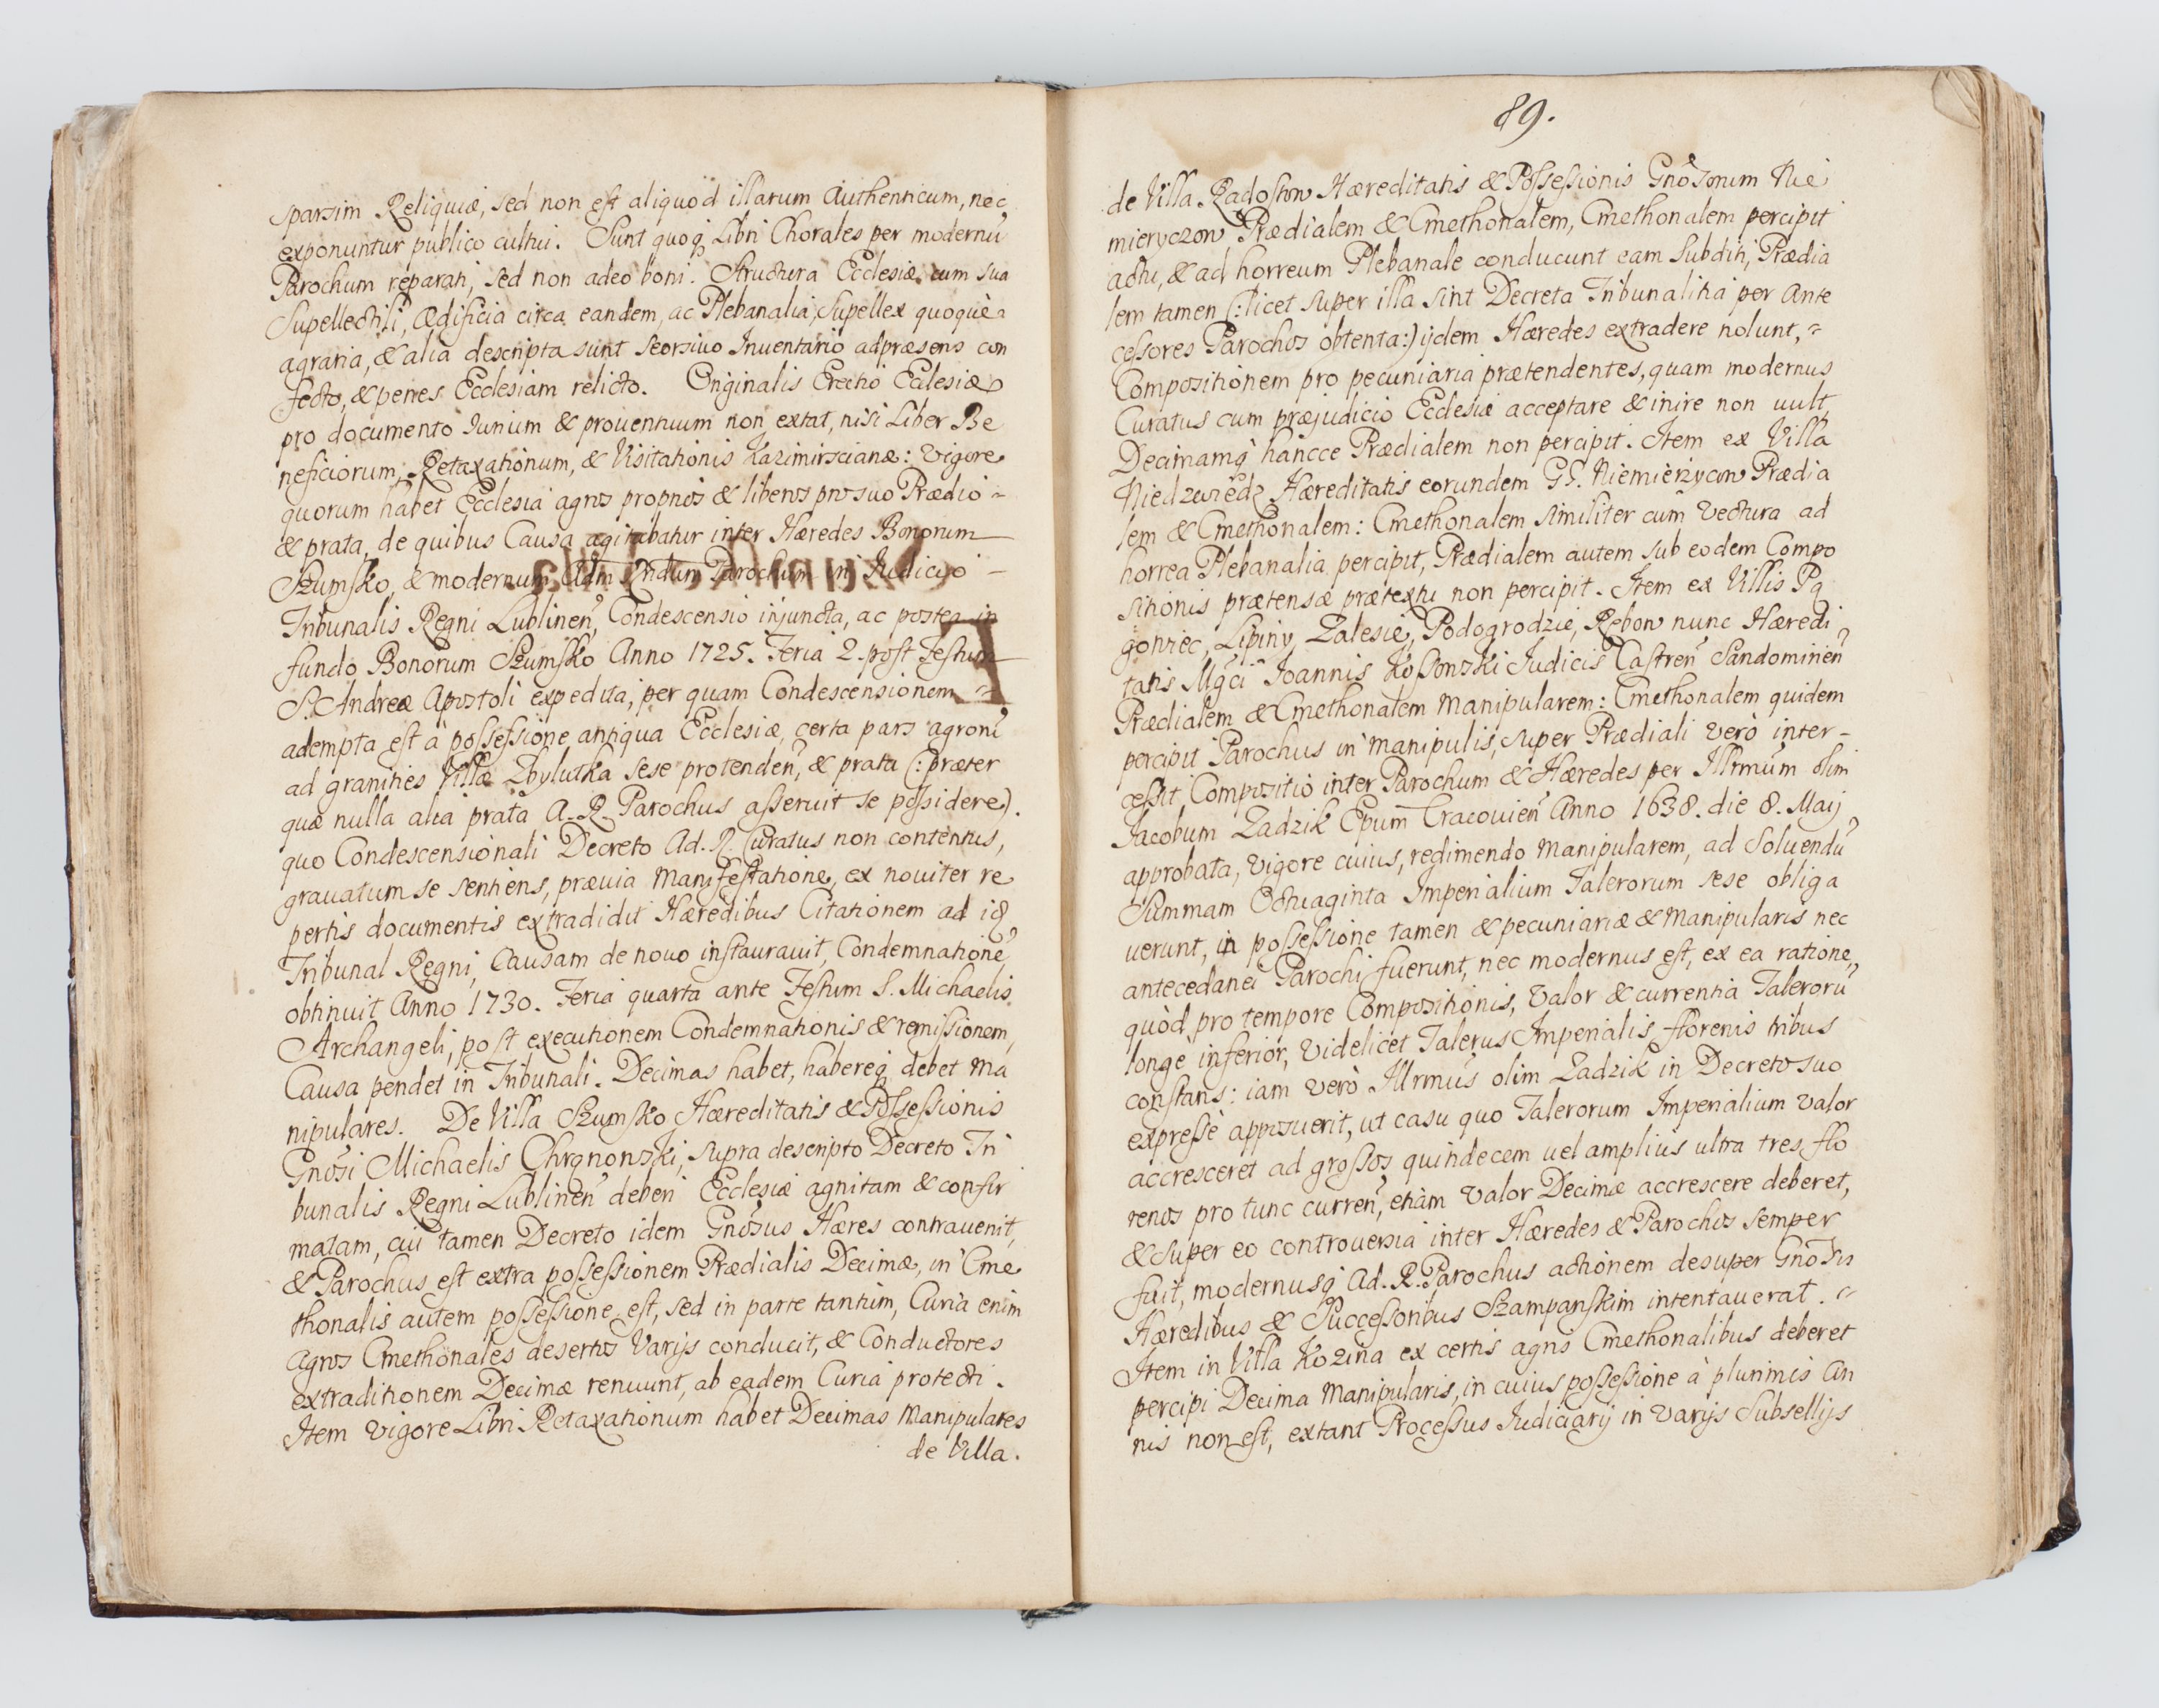 sparsim Reliquiæ, sed non est aliquod illarum Authenticum, nec
exponuntur publico cultui. Sunt quoq Libri Chorales per modernũ
Parochum reparati, sed non adeo boni. Structura Ecclesiæ cum sua
Supellectili, Ædificia circa eandem, ac Plebanalia, Supellex quoque
agraria, & alia descripta sunt Seorsivo Inventario adpræsens con
fecto, & penes Ecclesiam relicto. Originalis Erectio Ecclesiæ
pro documento Iurium & proventuum non extat, nisi Liber Be
neficiorum, Retaxationum, & Visitationis Kazimirscianæ: Vigore
quorum habet Ecclesia agros proprios & liberos pro suo Prædio =
& prata, de quibus Causa agitabatur inter Hæredes Bonorum
Szumsko, & modernum Adm Rndum Parochum in Iudicio =
Tribunalis Regni Lublinen̄, Condescensio injuncta, ac postea in
fundo Bonorum Szumsko Anno 1725. Feria 2. post Festum
S. Andreæ Apostoli expedita, per quam Condescensionem =
adempta est à possessione antiqua Ecclesiæ, certa pars agrorũ
ad granities Villæ Zbylutka sese protenden̄, & prata (: præter
quæ nulla alia prata A. R. Parochus asseruit se possidere).
quo Condescensionali Decreto Ad. R. Curatus non contentus,
gravatum se sentiens, prævia Manifestatione, ex noviter re
pertis documentis extradidit Hæredibus Citationem ad id
Tribunal Regni, Causam de novo instauravit, Condemnationē
obtinuit Anno 1730. Feria quarta ante Festum S. Michaelis
Archangeli, post executionem Condemnationis & remissionem,
Causa pendet in Tribunali. Decimas habet, habereq debet Ma
nipulares. De Villa Szumsko Hæreditatis & Possessionis
Gnōsi Michaelis Chrąnowski, supra descripto Decreto Tri
bunalis Regni Lublinen̄ deberi Ecclesiæ agnitam & confir
matam, cui tamen Decreto idem Gnōsus Hæres contravenit,
& Parochus est extra possessionem Prædialis Decimæ, in Cme
thonalis autem possessione est, sed in parte tantum, Curia enim
Agros Cmethonales desertos Varijs conducit, & Conductores
extraditionem Decimæ renuunt, ab eadem Curia protecti.
Item vigore Libri Retaxationum habet Decimas Manipulares
de Villa.
89.
de Villa Radostow Hæreditatis & Possessionis Gnōsorum Nie
mieryczow Prædialem & Cmethonalem, Cmethonalem percipit
actu, & ad horreum Plebanale conducunt eam Subditi, Prædia
lem tamen (: licet super illa sint Decreta Tribunalitia per Ante
cessores Parochos obtenta:) ijdem Hæredes extradere nolunt, =
Compositionem pro pecuniaria prætendentes, quam modernus
Curatus cum præjudicio Ecclesiæ acceptare & inire non vult,
Decimamq hancce Prædialem non percipit. Item ex Villa
Niedzwiedz Hæreditatis eorundem GG. Niemierzycow Prædia
lem & Cmethonalem: Cmethonalem similiter cum Vectura ad
horrea Plebanalia percipit, Prædialem autem sub eodem Compo
sitionis prætensæ prætextu non percipit. Item ex Villis Pą
gowiec, Lipiny, Zalesie, Podogrodzie, Rebow nunc Hæredi
tatis Mgci Joannis Kossowski Iudicis Castren̄ Sandomirien̄
Prædialem & Cmethonalem Manipularem: Cmethonalem quidem
percipit Parochus in manipulis, super Prædiali verò inter=
cessit Compositio inter Parochum & Hæredes per Illrmũm olim
Jacobum Zadzik Epum Cracovien̄ Anno 1638. die 8. Maij
approbata, vigore cuius, redimendo Manipularem, ad Solvendũ
Summam Octuaginta Imperialium Talerorum sese obliga
verunt, in possessione tamen & pecuniariæ & Manipularis nec
antecedanei Parochi fuerunt, nec modernus est, ex ea ratione,
quòd pro tempore Compositionis, Valor & currentia Talerorũ
longè inferior, videlicet Talerus Imperialis florenis tribus
constans: iam verò Illrmũs olim Zadzik in Decreto suo
expressè apposuerit, ut casu quo Talerorum Imperialium valor
accresceret ad grossos quindecem vel amplius ultra tres flo
renos pro tunc curren̄, etiam valor Decimæ accrescere deberet,
& super eo controversia inter Hæredes & Parochos semper
fuit, modernusq Ad. R. Parochus actionem desuper Gnōsis
Hæredibus & Successoribus Szampanskim intentaverat. =
Item in Villa Kozina ex certis agris Cmethonalibus deberet
percipi Decima Manipularis, in cuius possessione à plurimis An
nis non est, extant Processus Iudiciarij in Varijs Subsellijs